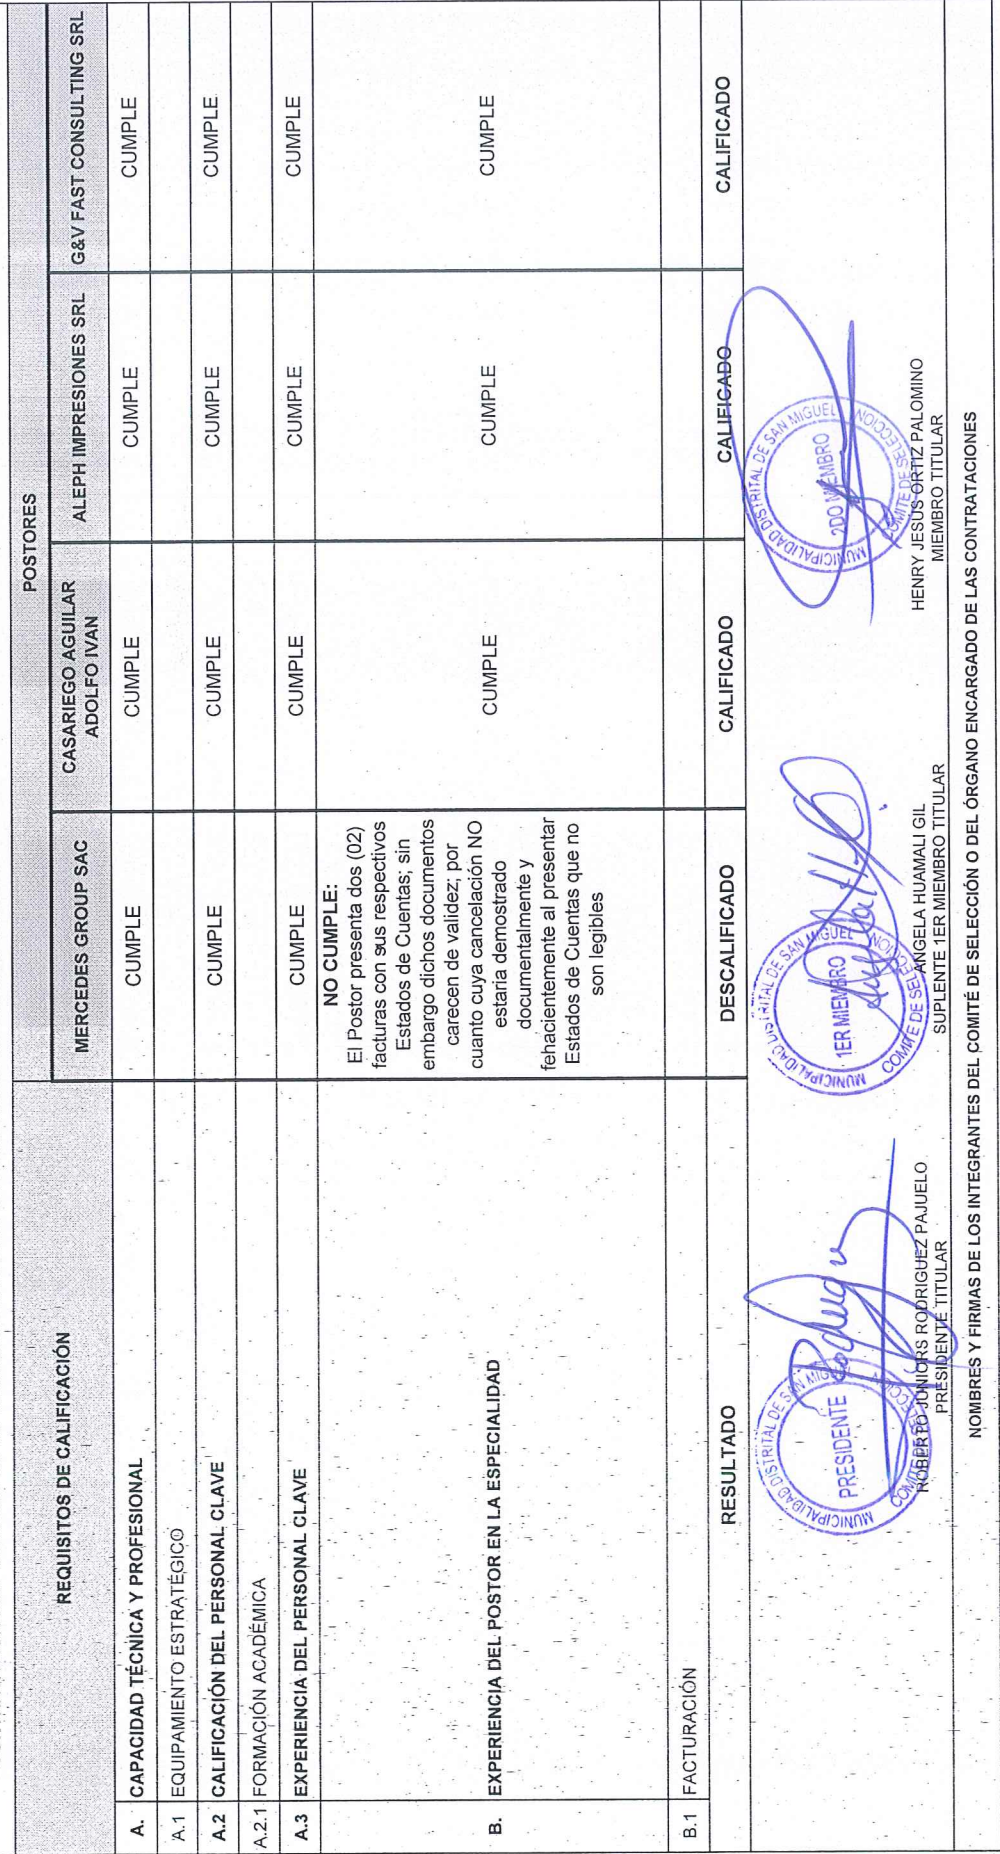 POSTORES
REQUISITOS DE CALIFICACIÓN
MERCEDES GROUP SAC
CASARIEGO AGUILAR
ADOLFO IVAN
ALEPH IMPRESIONES SRL
G&V FAST CONSULTING SRL
A. CAPACIDAD TÉCNICA Y PROFESIONAL CUMPLE CUMPLE CUMPLE CUMPLE
A.1 EQUIPAMIENTO ESTRATÉGICO
A.2 CALIFICACIÓN DEL PERSONAL CLAVE CUMPLE CUMPLE CUMPLE CUMPLE
A.2.1 FORMACIÓN ACADÉMICA
A.3 EXPERIENCIA DEL PERSONAL CLAVE CUMPLE CUMPLE CUMPLE CUMPLE
B. EXPERIENCIA DEL POSTOR EN LA ESPECIALIDAD
NO CUMPLE:
El Postor presenta dos (02)
facturas con sus respectivos
Estados de Cuentas; sin
embargo dichos documentos
carecen de validez; por
cuanto cuya cancelación NO
estaria demostrado
documentalmente y
fehacientemente al presentar
Estados de Cuentas que no
son legibles
CUMPLE CUMPLE CUMPLE
B.1 FACTURACIÓN
RESULTADO DESCALIFICADO CALIFICADO CALIFICADO CALIFICADO
MUNICIPALIDAD DISTRITAL DE SAN MIGUEL
PRESIDENTE
COMITE DE SELECCION
ROBERTO JUNIORS RODRIGUEZ PAJUELO
PRESIDENTE TITULAR
MUNICIPALIDAD DISTRITAL DE SAN MIGUEL
1ER MIEMBRO
COMITE DE SELECCION
ANGELA HUAMALI GIL
SUPLENTE 1ER MIEMBRO TITULAR
MUNICIPALIDAD DISTRITAL DE SAN MIGUEL
2DO MIEMBRO
COMITE DE SELECCION
HENRY JESUS ORTIZ PALOMINO
MIEMBRO TITULAR
NOMBRES Y FIRMAS DE LOS INTEGRANTES DEL COMITÉ DE SELECCIÓN O DEL ÓRGANO ENCARGADO DE LAS CONTRATACIONES